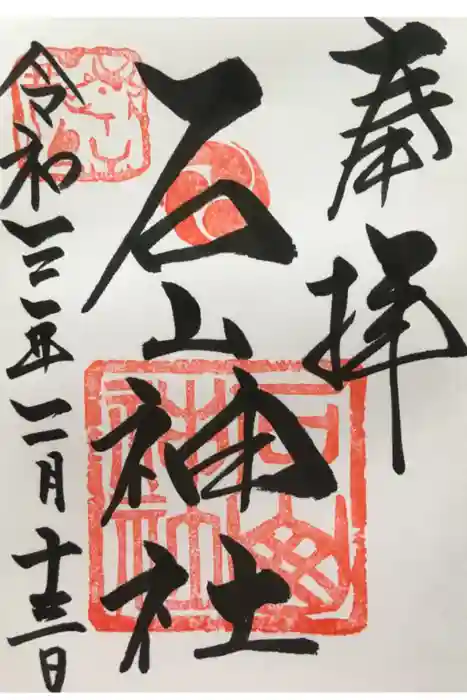 奉拝
石山神社
令和三年二月十三日